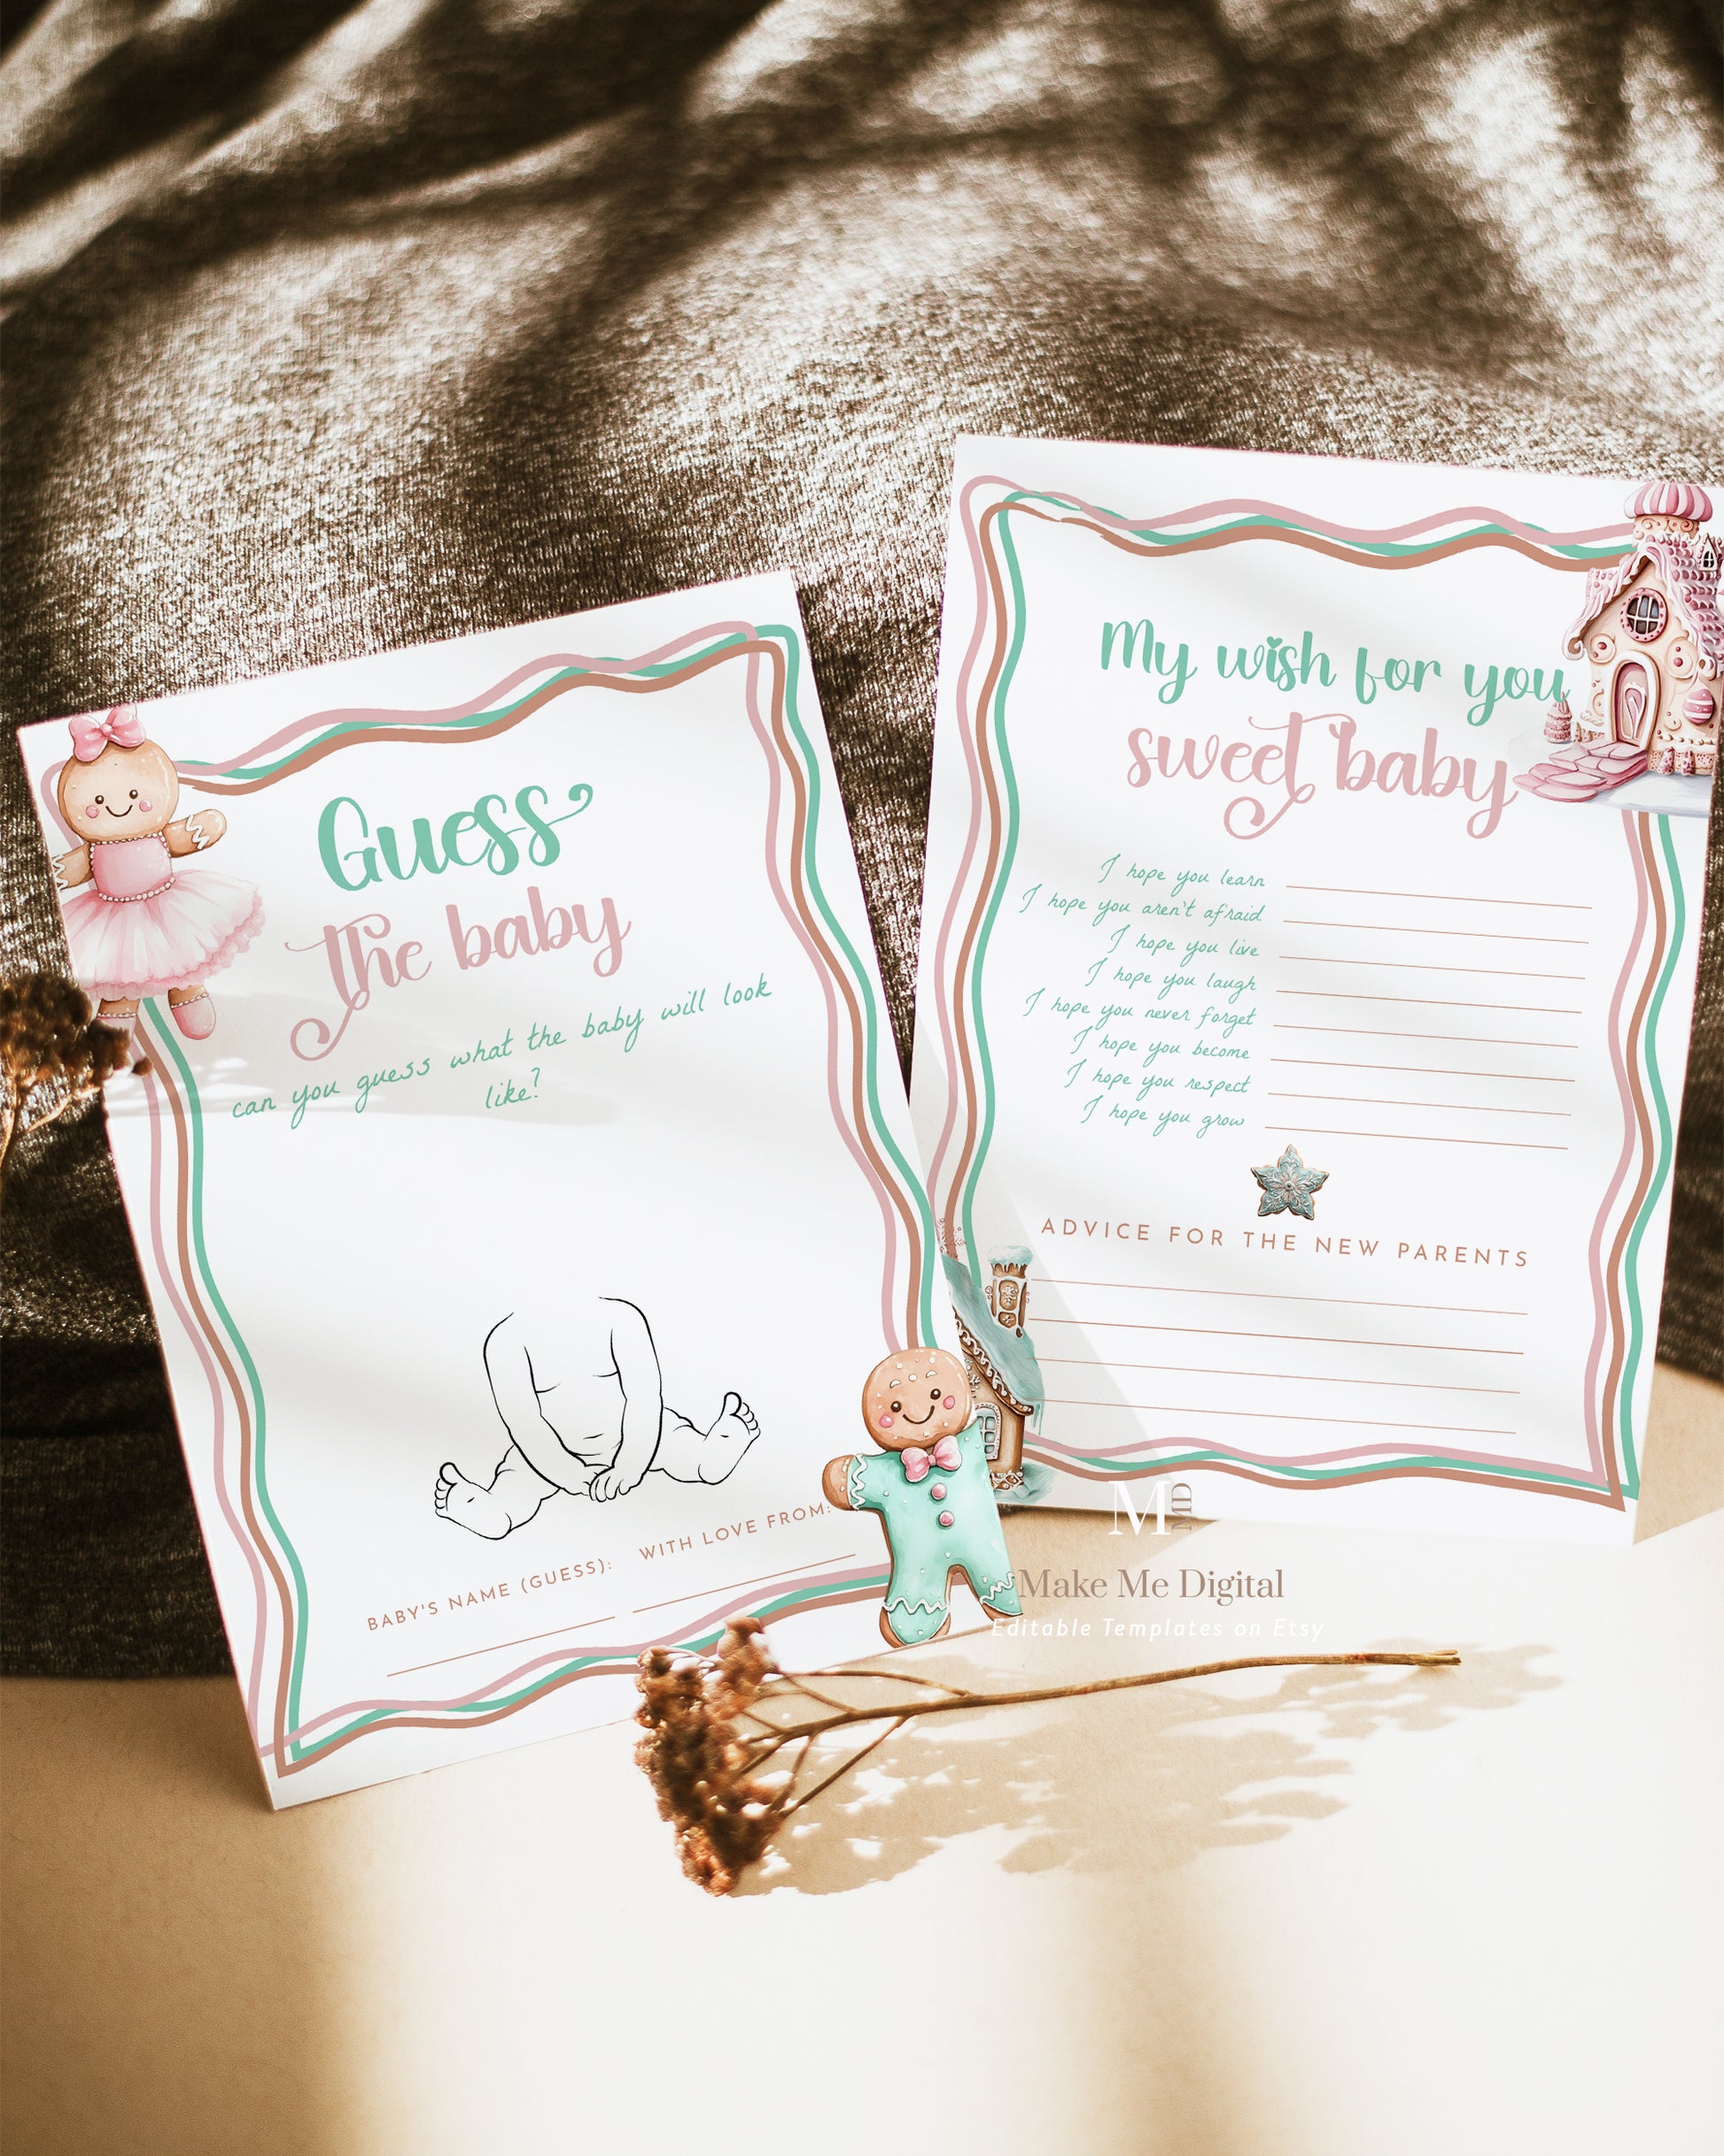 Guess
the baby
can you guess what the baby will look
like?
BABY'S NAME (GUESS):
WITH LOVE FROM:
My wish for you
sweet baby
I hope you learn
I hope you aren't afraid
I hope you live
I hope you laugh
I hope you never forget
I hope you become
I hope you respect
I hope you grow
ADVICE FOR THE NEW PARENTS
M MD
Make Me Digital
Editable Templates on Etsy